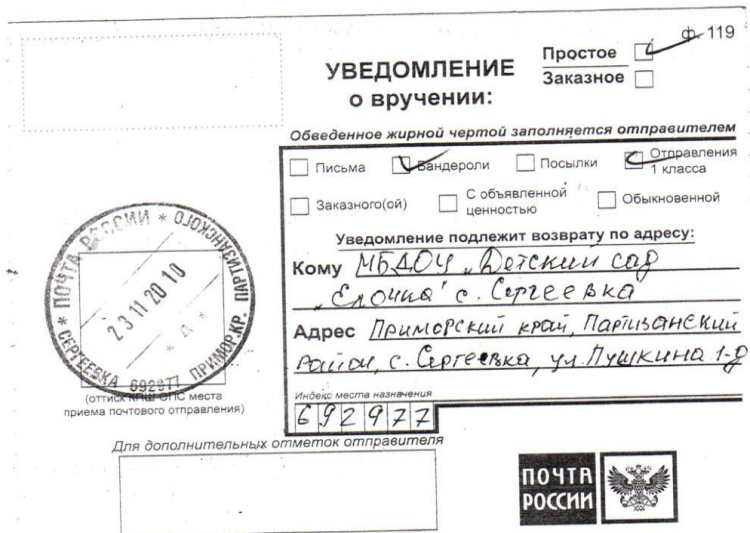 ф. 119
УВЕДОМЛЕНИЕ
о вручении:
Простое
Заказное
Обведенное жирной чертой заполняется отправителем
Письма Бандероли Посылки Отправления 1 класса
Заказного(ой) С объявленной ценностью Обыкновенной
Уведомление подлежит возврату по адресу:
Кому МБДОУ „Детский сад
„Елочка" с. Сергеевка
Адрес Приморский край, Партизанский
район, с. Сергеевка, ул. Пушкина 1-д
Индекс места назначения
692977
ПОЧТА РОССИИ * ПАРТИЗАНСКОГО ПРИМОР.КР. * СЕРГЕЕВКА 692977
23 11 20 10
(оттиск КПШ ОПС места
приема почтового отправления)
Для дополнительных отметок отправителя
ПОЧТА
РОССИИ